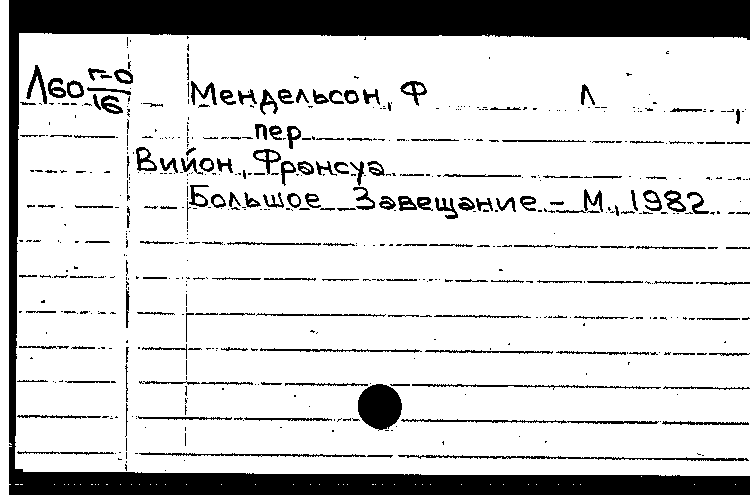 Л60 Г-0/16 Мендельсон, Ф Л
пер
Вийон, Франсуа
Большое Завещание - М., 1982